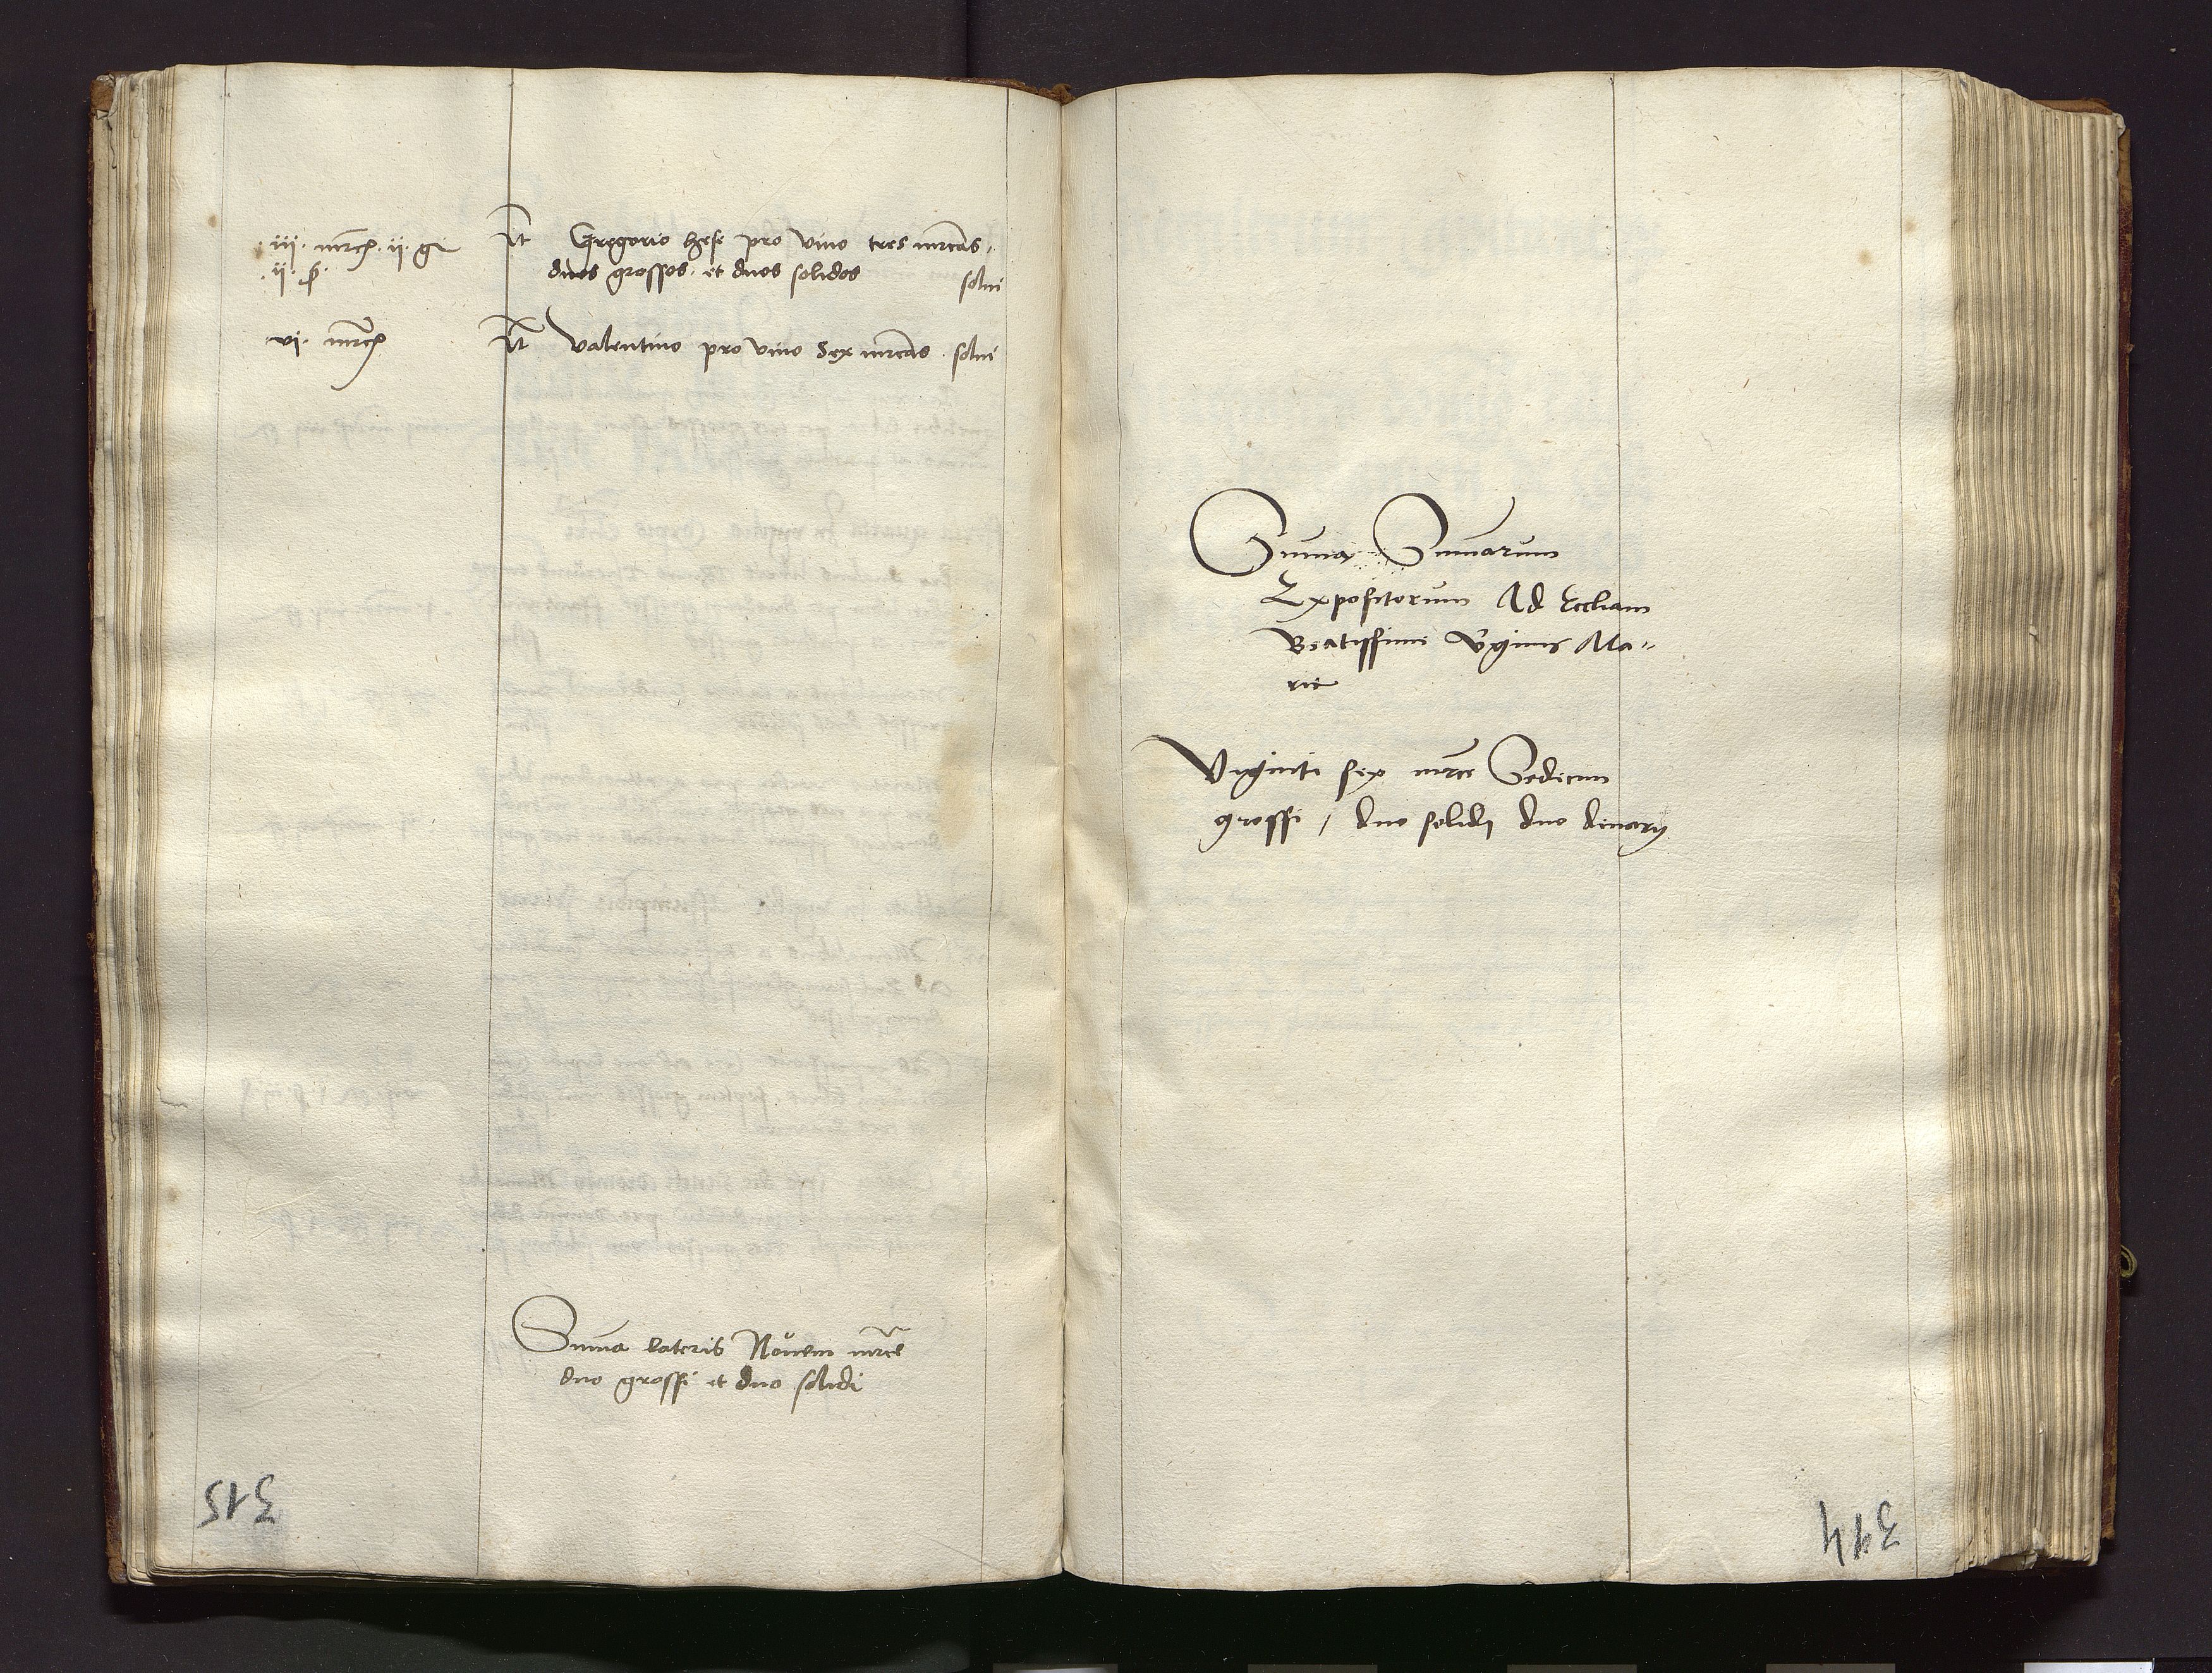 .iii. mrc. ii. gr
.ii. s.
It Gregorio Hese pro vino tres mrcas,
duos grossos. et duos solidos solui
vi. mrc
It Valentino pro vino Sex mrcas . solui
Suma lateris Nouem mrce
duo grossi et duo solidi
315
Suma Sumarum
Expositorum Ad Eccliam
Beatissime Vginis Ma-
rie
Viginti sex mrce Sedecim
grossi / duo solidi duo denarij
314